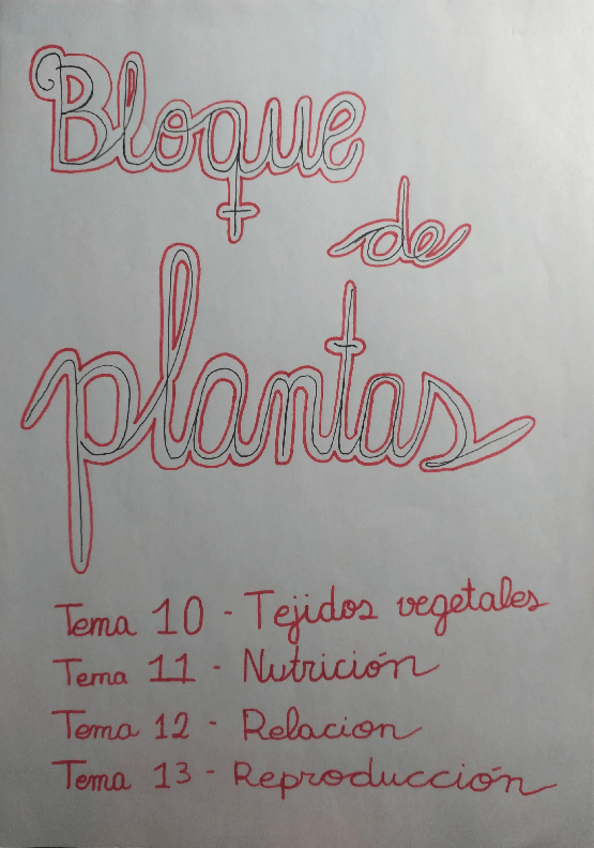 Bloque
de
plantas
Tema 10 - Tejidos vegetales
Tema 11 - Nutrición
Tema 12 - Relacion
Tema 13 - Reproducción